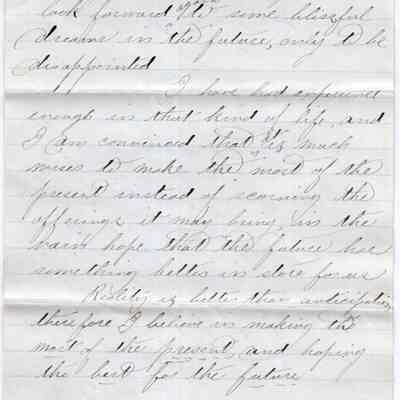 look forward to some blissful
dreams in the future, only to be
disappointed
I have had experience
enough in that kind of life, and
I am convinced that it is much
wiser to make the most of the
present instead of scorning the
offerings it may bring, in the
vain hope that the future has
something better in store for us
Reality is better than anticipation,
therefore I believe in making the
most of the present, and hoping
the best for the future